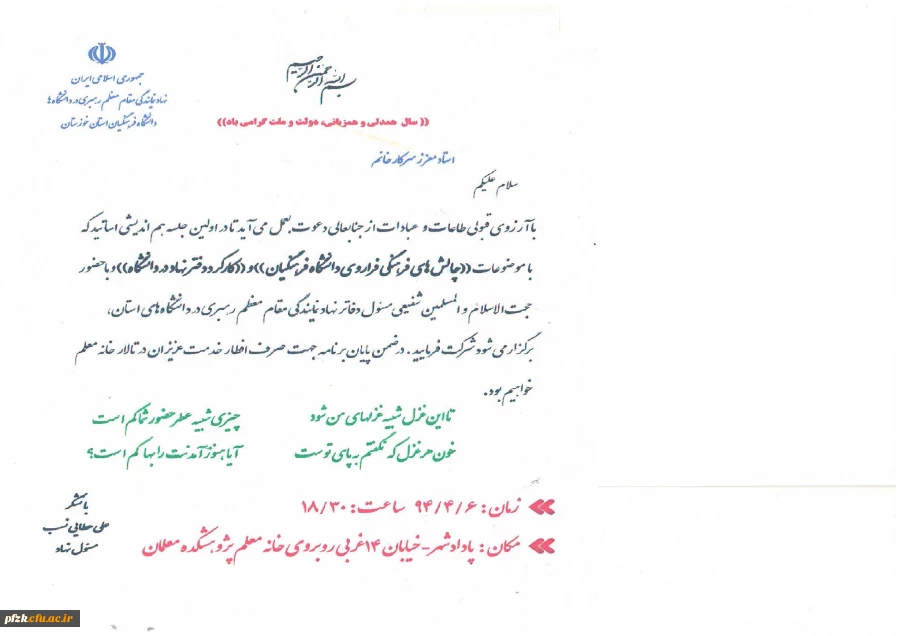 بسم الله الرحمن الرحیم
جمهوری اسلامی ایران
نهاد نمایندگی مقام معظم رهبری در دانشگاه ها
دانشگاه فرهنگیان استان خوزستان
(( سال همدلی و همزبانی، دولت و ملت گرامی باد))
استاد معزز سرکار خانم
سلام علیکم
با آرزوی قبولی طاعات و عبادات از جنابعالی دعوت بعمل می آید تا در اولین جلسه هم اندیشی اساتید که
با موضوعات ((چالش های فرهنگی فراروی دانشگاه فرهنگیان))و((کارکرد دفتر نهاد در دانشگاه))و با حضور
حجت الاسلام و المسلمین شفیعی مسئول دفاتر نهاد نمایندگی مقام معظم رهبری در دانشگاه های استان،
برگزار می شود شرکت فرمایید. در ضمن پایان برنامه جهت صرف افطار خدمت عزیزان در تالار خانه معلم
خواهیم بود.
تا این غزل شبیه غزلهای من شود چیزی شبیه عطر حضور شما کم است
خون هر غزل که نگفتم به پای توست آیا هنوز آمدنت را بها کم است؟
زمان: ۹۴/۴/۶ ساعت: ۱۸/۳۰
مکان: پادادشهر-خیابان ۱۴غربی روبروی خانه معلم پژوهشکده معلمان
با تشکر
علی عطایی نسب
مسئول نهاد
pfzk.cfu.ac.ir